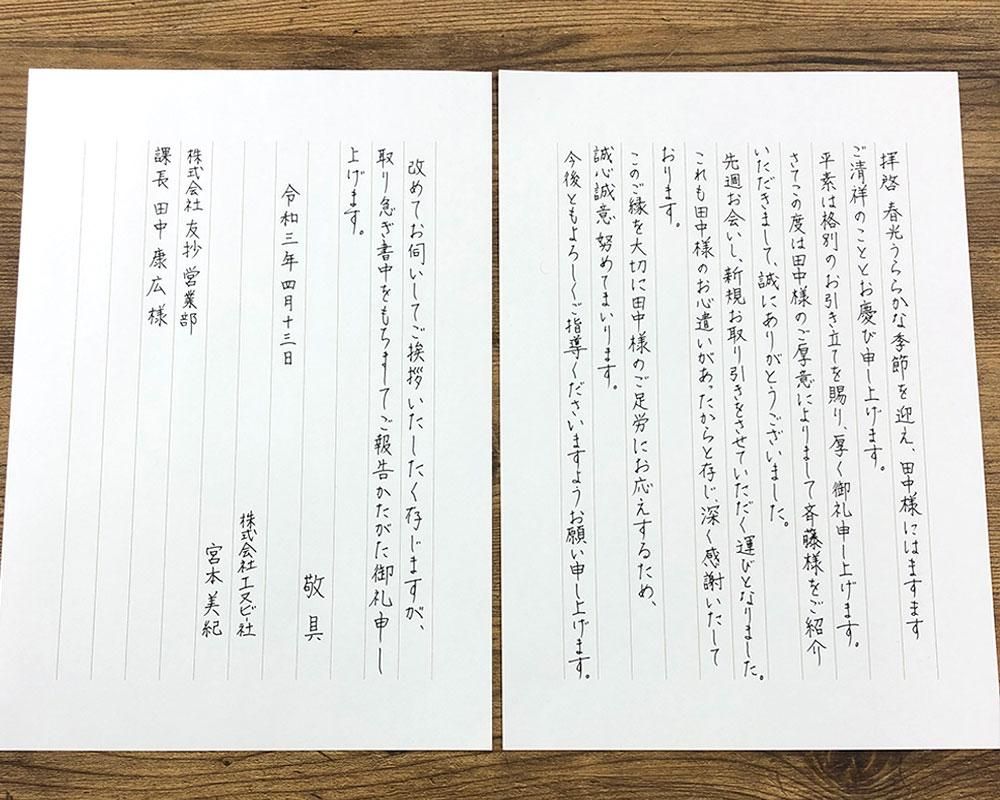 拝啓 春光うららかな季節を迎え、田中様にはますます
ご清祥のこととお慶び申し上げます。
平素は格別のお引き立てを賜り、厚く御礼申し上げます。
さてこの度は田中様のご厚意によりまして斉藤様をご紹介
いただきまして、誠にありがとうございました。
先週お会いし、新規お取り引きをさせていただく運びとなりました。
これも田中様のお心遣いがあったからと存じ、深く感謝いたして
おります。
このご縁を大切に田中様のご足労にお応えするため、
誠心誠意努めてまいります。
今後ともよろしくご指導くださいますようお願い申し上げます。
改めてお伺いしてご挨拶いたしたく存じますが、
取り急ぎ書中をもちましてご報告かたがた御礼申し
上げます。
敬具
令和三年四月十三日
株式会社エヌビー社
宮本美紀
株式会社 友抄 営業部
課長 田中 康広 様